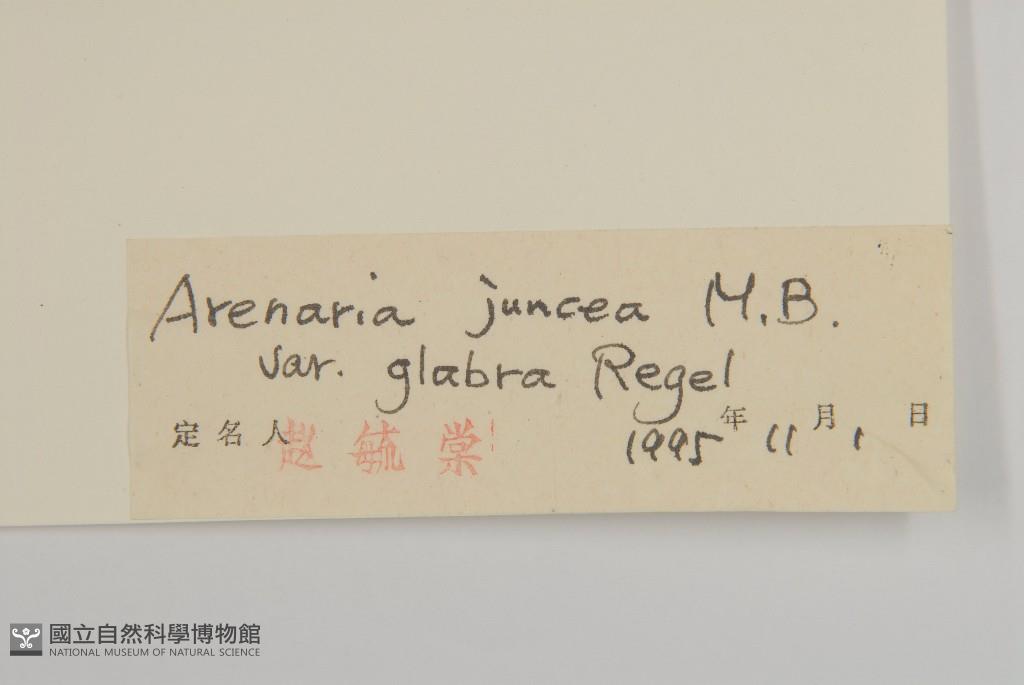 Arenaria juncea M.B.
var. glabra Regel
定名人 赵毓棠 1995年11月1日
國立自然科學博物館
NATIONAL MUSEUM OF NATURAL SCIENCE